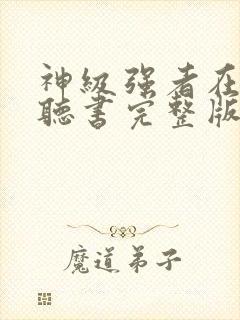 神级强者在
聽書完整版
魔道弟子